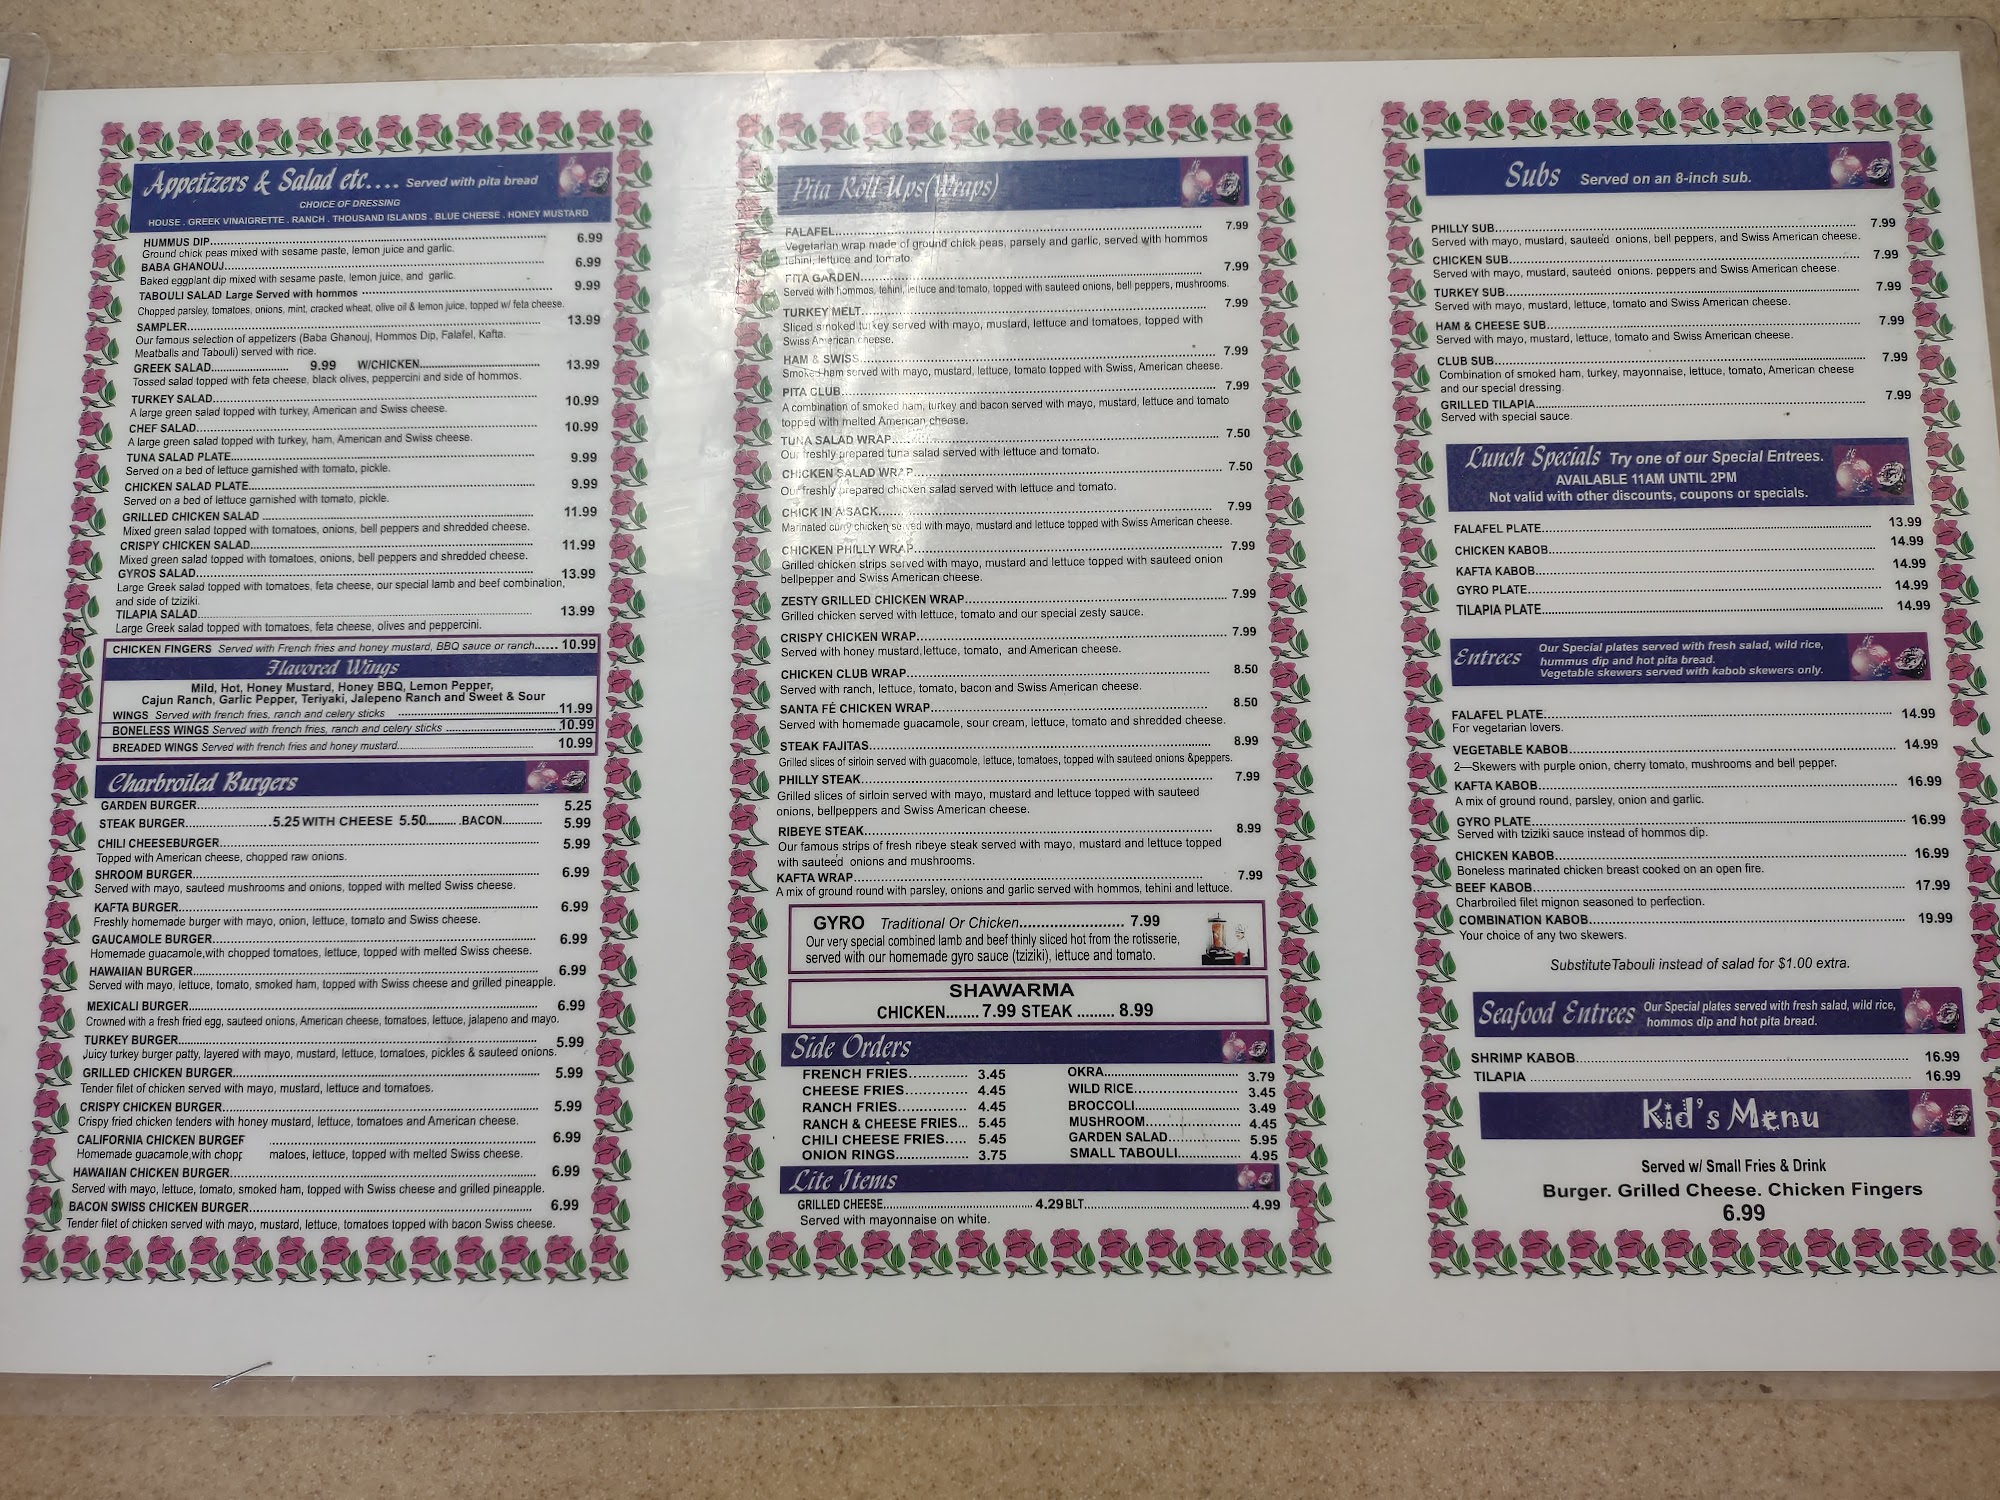 Appetizers & Salad etc.... Served with pita bread
CHOICE OF DRESSING
HOUSE . GREEK VINAIGRETTE . RANCH . THOUSAND ISLANDS . BLUE CHEESE . HONEY MUSTARD
HUMMUS DIP 6.99
Ground chick peas mixed with sesame paste, lemon juice and garlic.
BABA GHANOUJ 6.99
Baked eggplant dip mixed with sesame paste, lemon juice, and garlic.
TABOULI SALAD Large Served with hommos 9.99
Chopped parsley, tomatoes, onions, mint, cracked wheat, olive oil & lemon juice, topped w/ feta cheese.
SAMPLER 13.99
Our famous selection of appetizers (Baba Ghanouj, Hommos Dip, Falafel, Kafta.
Meatballs and Tabouli) served with rice.
GREEK SALAD 9.99 W/CHICKEN 13.99
Tossed salad topped with feta cheese, black olives, peppercini and side of hommos.
TURKEY SALAD 10.99
A large green salad topped with turkey, American and Swiss cheese.
CHEF SALAD 10.99
A large green salad topped with turkey, ham, American and Swiss cheese.
TUNA SALAD PLATE 9.99
Served on a bed of lettuce garnished with tomato, pickle.
CHICKEN SALAD PLATE 9.99
Served on a bed of lettuce garnished with tomato, pickle.
GRILLED CHICKEN SALAD 11.99
Mixed green salad topped with tomatoes, onions, bell peppers and shredded cheese.
CRISPY CHICKEN SALAD 11.99
Mixed green salad topped with tomatoes, onions, bell peppers and shredded cheese.
GYROS SALAD 13.99
Large Greek salad topped with tomatoes, feta cheese, our special lamb and beef combination,
and side of tziziki.
TILAPIA SALAD 13.99
Large Greek salad topped with tomatoes, feta cheese, olives and peppercini.
CHICKEN FINGERS Served with French fries and honey mustard, BBQ sauce or ranch 10.99
Flavored Wings
Mild, Hot, Honey Mustard, Honey BBQ, Lemon Pepper,
Cajun Ranch, Garlic Pepper, Teriyaki, Jalepeno Ranch and Sweet & Sour
WINGS Served with french fries, ranch and celery sticks 11.99
BONELESS WINGS Served with french fries, ranch and celery sticks 10.99
BREADED WINGS Served with french fries and honey mustard 10.99
Charbroiled Burgers
GARDEN BURGER 5.25
STEAK BURGER 5.25 WITH CHEESE 5.50 BACON 5.99
CHILI CHEESEBURGER 5.99
Topped with American cheese, chopped raw onions.
SHROOM BURGER 6.99
Served with mayo, sauteed mushrooms and onions, topped with melted Swiss cheese.
KAFTA BURGER 6.99
Freshly homemade burger with mayo, onion, lettuce, tomato and Swiss cheese.
GAUCAMOLE BURGER 6.99
Homemade guacamole,with chopped tomatoes, lettuce, topped with melted Swiss cheese.
HAWAIIAN BURGER 6.99
Served with mayo, lettuce, tomato, smoked ham, topped with Swiss cheese and grilled pineapple.
MEXICALI BURGER 6.99
Crowned with a fresh fried egg, sauteed onions, American cheese, tomatoes, lettuce, jalapeno and mayo.
TURKEY BURGER 5.99
Juicy turkey burger patty, layered with mayo, mustard, lettuce, tomatoes, pickles & sauteed onions.
GRILLED CHICKEN BURGER 5.99
Tender filet of chicken served with mayo, mustard, lettuce and tomatoes.
CRISPY CHICKEN BURGER 5.99
Crispy fried chicken tenders with honey mustard, lettuce, tomatoes and American cheese.
CALIFORNIA CHICKEN BURGER 6.99
Homemade guacamole,with chopp matoes, lettuce, topped with melted Swiss cheese.
HAWAIIAN CHICKEN BURGER 6.99
Served with mayo, lettuce, tomato, smoked ham, topped with Swiss cheese and grilled pineapple.
BACON SWISS CHICKEN BURGER 6.99
Tender filet of chicken served with mayo, mustard, lettuce, tomatoes topped with bacon Swiss cheese.
Pita Roll Ups(Wraps)
FALAFEL 7.99
Vegetarian wrap made of ground chick peas, parsely and garlic, served with hommos
tehini, lettuce and tomato.
PITA GARDEN 7.99
Served with hommos, tehini, lettuce and tomato, topped with sauteed onions, bell peppers, mushrooms.
TURKEY MELT 7.99
Sliced smoked turkey served with mayo, mustard, lettuce and tomatoes, topped with
Swiss American cheese.
HAM & SWISS 7.99
Smoked ham served with mayo, mustard, lettuce, tomato topped with Swiss, American cheese.
PITA CLUB 7.99
A combination of smoked ham, turkey and bacon served with mayo, mustard, lettuce and tomato
topped with melted American cheese.
TUNA SALAD WRAP 7.50
Our freshly prepared tuna salad served with lettuce and tomato.
CHICKEN SALAD WRAP 7.50
Our freshly prepared chicken salad served with lettuce and tomato.
CHICK IN A SACK 7.99
Marinated curry chicken served with mayo, mustard and lettuce topped with Swiss American cheese.
CHICKEN PHILLY WRAP 7.99
Grilled chicken strips served with mayo, mustard and lettuce topped with sauteed onion
bellpepper and Swiss American cheese.
ZESTY GRILLED CHICKEN WRAP 7.99
Grilled chicken served with lettuce, tomato and our special zesty sauce.
CRISPY CHICKEN WRAP 7.99
Served with honey mustard,lettuce, tomato, and American cheese.
CHICKEN CLUB WRAP 8.50
Served with ranch, lettuce, tomato, bacon and Swiss American cheese.
SANTA FÉ CHICKEN WRAP 8.50
Served with homemade guacamole, sour cream, lettuce, tomato and shredded cheese.
STEAK FAJITAS 8.99
Grilled slices of sirloin served with guacomole, lettuce, tomatoes, topped with sauteed onions &peppers.
PHILLY STEAK 7.99
Grilled slices of sirloin served with mayo, mustard and lettuce topped with sauteed
onions, bellpeppers and Swiss American cheese.
RIBEYE STEAK 8.99
Our famous strips of fresh ribeye steak served with mayo, mustard and lettuce topped
with sauteed onions and mushrooms.
KAFTA WRAP 7.99
A mix of ground round with parsley, onions and garlic served with hommos, tehini and lettuce.
GYRO Traditional Or Chicken 7.99
Our very special combined lamb and beef thinly sliced hot from the rotisserie,
served with our homemade gyro sauce (tziziki), lettuce and tomato.
SHAWARMA
CHICKEN........ 7.99 STEAK ......... 8.99
Side Orders
FRENCH FRIES 3.45
CHEESE FRIES 4.45
RANCH FRIES 4.45
RANCH & CHEESE FRIES 5.45
CHILI CHEESE FRIES 5.45
ONION RINGS 3.75
OKRA 3.79
WILD RICE 3.45
BROCCOLI 3.49
MUSHROOM 4.45
GARDEN SALAD 5.95
SMALL TABOULI 4.95
Lite Items
GRILLED CHEESE 4.29 BLT 4.99
Served with mayonnaise on white.
Subs Served on an 8-inch sub.
PHILLY SUB 7.99
Served with mayo, mustard, sauteed onions, bell peppers, and Swiss American cheese.
CHICKEN SUB 7.99
Served with mayo, mustard, sauteed onions. peppers and Swiss American cheese.
TURKEY SUB 7.99
Served with mayo, mustard, lettuce, tomato and Swiss American cheese.
HAM & CHEESE SUB 7.99
Served with mayo, mustard, lettuce, tomato and Swiss American cheese.
CLUB SUB 7.99
Combination of smoked ham, turkey, mayonnaise, lettuce, tomato, American cheese
and our special dressing.
GRILLED TILAPIA 7.99
Served with special sauce.
Lunch Specials Try one of our Special Entrees.
AVAILABLE 11AM UNTIL 2PM
Not valid with other discounts, coupons or specials.
FALAFEL PLATE 13.99
CHICKEN KABOB 14.99
KAFTA KABOB 14.99
GYRO PLATE 14.99
TILAPIA PLATE 14.99
Entrees Our Special plates served with fresh salad, wild rice,
hummus dip and hot pita bread.
Vegetable skewers served with kabob skewers only.
FALAFEL PLATE 14.99
For vegetarian lovers.
VEGETABLE KABOB 14.99
2—Skewers with purple onion, cherry tomato, mushrooms and bell pepper.
KAFTA KABOB 16.99
A mix of ground round, parsley, onion and garlic.
GYRO PLATE 16.99
Served with tziziki sauce instead of hommos dip.
CHICKEN KABOB 16.99
Boneless marinated chicken breast cooked on an open fire.
BEEF KABOB 17.99
Charbroiled filet mignon seasoned to perfection.
COMBINATION KABOB 19.99
Your choice of any two skewers.
SubstituteTabouli instead of salad for $1.00 extra.
Seafood Entrees Our Special plates served with fresh salad, wild rice,
hommos dip and hot pita bread.
SHRIMP KABOB 16.99
TILAPIA 16.99
Kid's Menu
Served w/ Small Fries & Drink
Burger. Grilled Cheese. Chicken Fingers
6.99